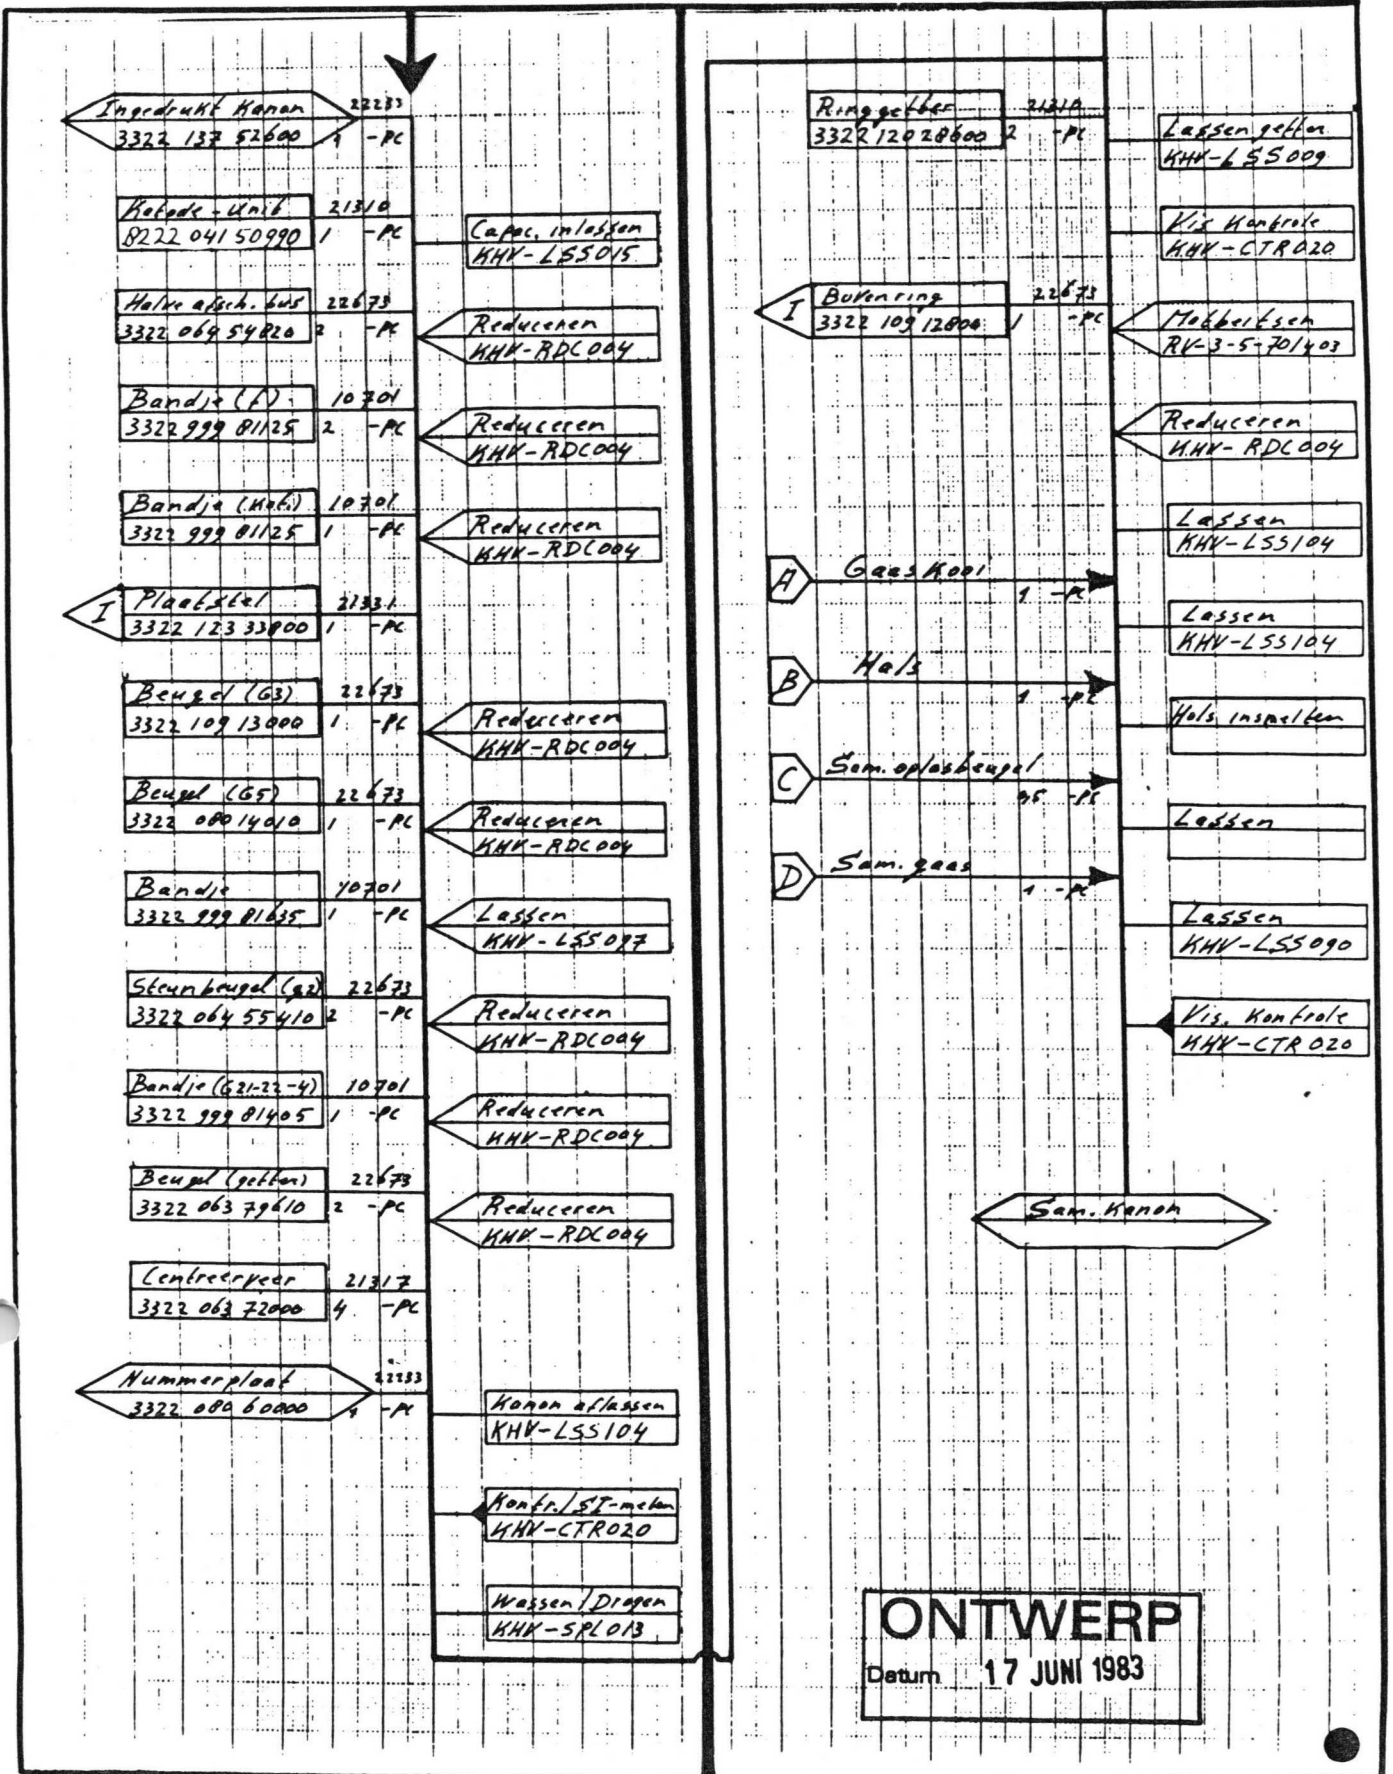 Ingedrukt Kanon 22233
3322 137 52600 1 -PC
Katode-Unit 21310
8222 041 50990 1 -PC
Capac. inlassen
KHV-LSS015
Halve afsch. bus 22673
3322 064 54820 2 -PC
Reduceren
KHV-RDC004
Bandje (f) 10701
3322 999 81125 2 -PC
Reduceren
KHV-RDC004
Bandje (Kat.) 10701
3322 999 81125 1 -PC
Reduceren
KHV-RDC004
I Plaatstel 21331
3322 123 33800 1 -PC
Beugel (G3) 22673
3322 109 13000 1 -PC
Reduceren
KHV-RDC004
Beugel (G5) 22673
3322 080 14010 1 -PC
Reduceren
KHV-RDC004
Bandje 10701
3322 999 81635 1 -PC
Lassen
KHV-LSS097
Steunbeugel (g2) 22673
3322 064 55410 2 -PC
Reduceren
KHV-RDC004
Bandje (G21-22-4) 10701
3322 999 81405 1 -PC
Reduceren
KHV-RDC004
Beugel (getter) 22673
3322 063 79610 2 -PC
Reduceren
KHV-RDC004
Centreerveer 21317
3322 063 72000 4 -PC
Nummerplaat 22233
3322 080 60000 1 -PC
Kanon aflassen
KHV-LSS104
Kontr./SI-meten
KHV-CTR020
Wassen/Drogen
KHV-SPL013
Ringgetter 21310
3322 120 28600 2 -PC
Lassen getter
KHV-LSS009
Vis Kontrole
KHV-CTR020
I Bovenring 22673
3322 109 12804 1 -PC
RV-3-5-701403
Reduceren
KHV-RDC004
Lassen
KHV-LSS104
A Gaaskooi
1 -PC
Lassen
KHV-LSS104
B Hals
1 -PC
Hals insmelten
C Sam. oplasbeugel
-PC
Lassen
D Sam. gaas
1 -PC
Lassen
KHV-LSS090
Vis. Kontrole
KHV-CTR020
Sam. Kanon
ONTWERP
Datum 17 JUNI 1983